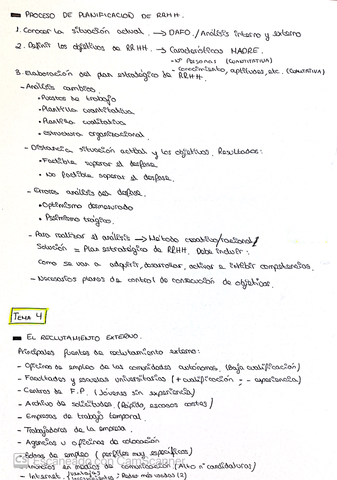 PROCESO DE PLANIFICACIÓN DE RRHH.
1. Conocer la situación actual. → DAFO. / Análisis interno y externo
2. Definir los objetivos de RRHH. → Características MADRE.
- nº Personas (CUANTITATIVA)
- conocimiento, aptitudes, etc. (CUALITATIVA)
3. Elaboración del plan estratégico de RRHH.
- Análisis cambios.
• Puestos de trabajo
• Plantilla cuantitativa
• Plantilla cualitativa
• estructura organizacional.
- Distancia situación actual y los objetivos. Resultados:
• Factible superar el desfase
• No factible superar el desfase.
- Errores análisis del desfase.
• Optimismo desmesurado
• Pesimismo trágico.
- Para realizar el análisis → Método creativo/racional/
Solución = Plan estratégico de RRHH. Debe incluir:
Como se van a adquirir, desarrollar, activar e inhibir competencias.
- Necesarios planes de control de consecución de objetivos.
TEMA 4
EL RECLUTAMIENTO EXTERNO.
Principales fuentes de reclutamiento externo:
- Oficinas de empleo de las comunidades autónomas. (Baja cualificación)
- Facultades y escuelas universitarias (+ cualificación - experiencia)
- Centros de F.P. (Jóvenes sin experiencia)
- Archivo de solicitudes. (Rápido, escasos costes)
- Empresas de trabajo temporal.
- Trabajadores de la empresa.
- Agencias u oficinas de colocación
- Bolsas de empleo (perfiles muy específicos)
- Anuncios en medios de comunicación (Alto nº candidaturas)
- Internet. Redes más usadas (2)
CS Escaneado con CamScanner